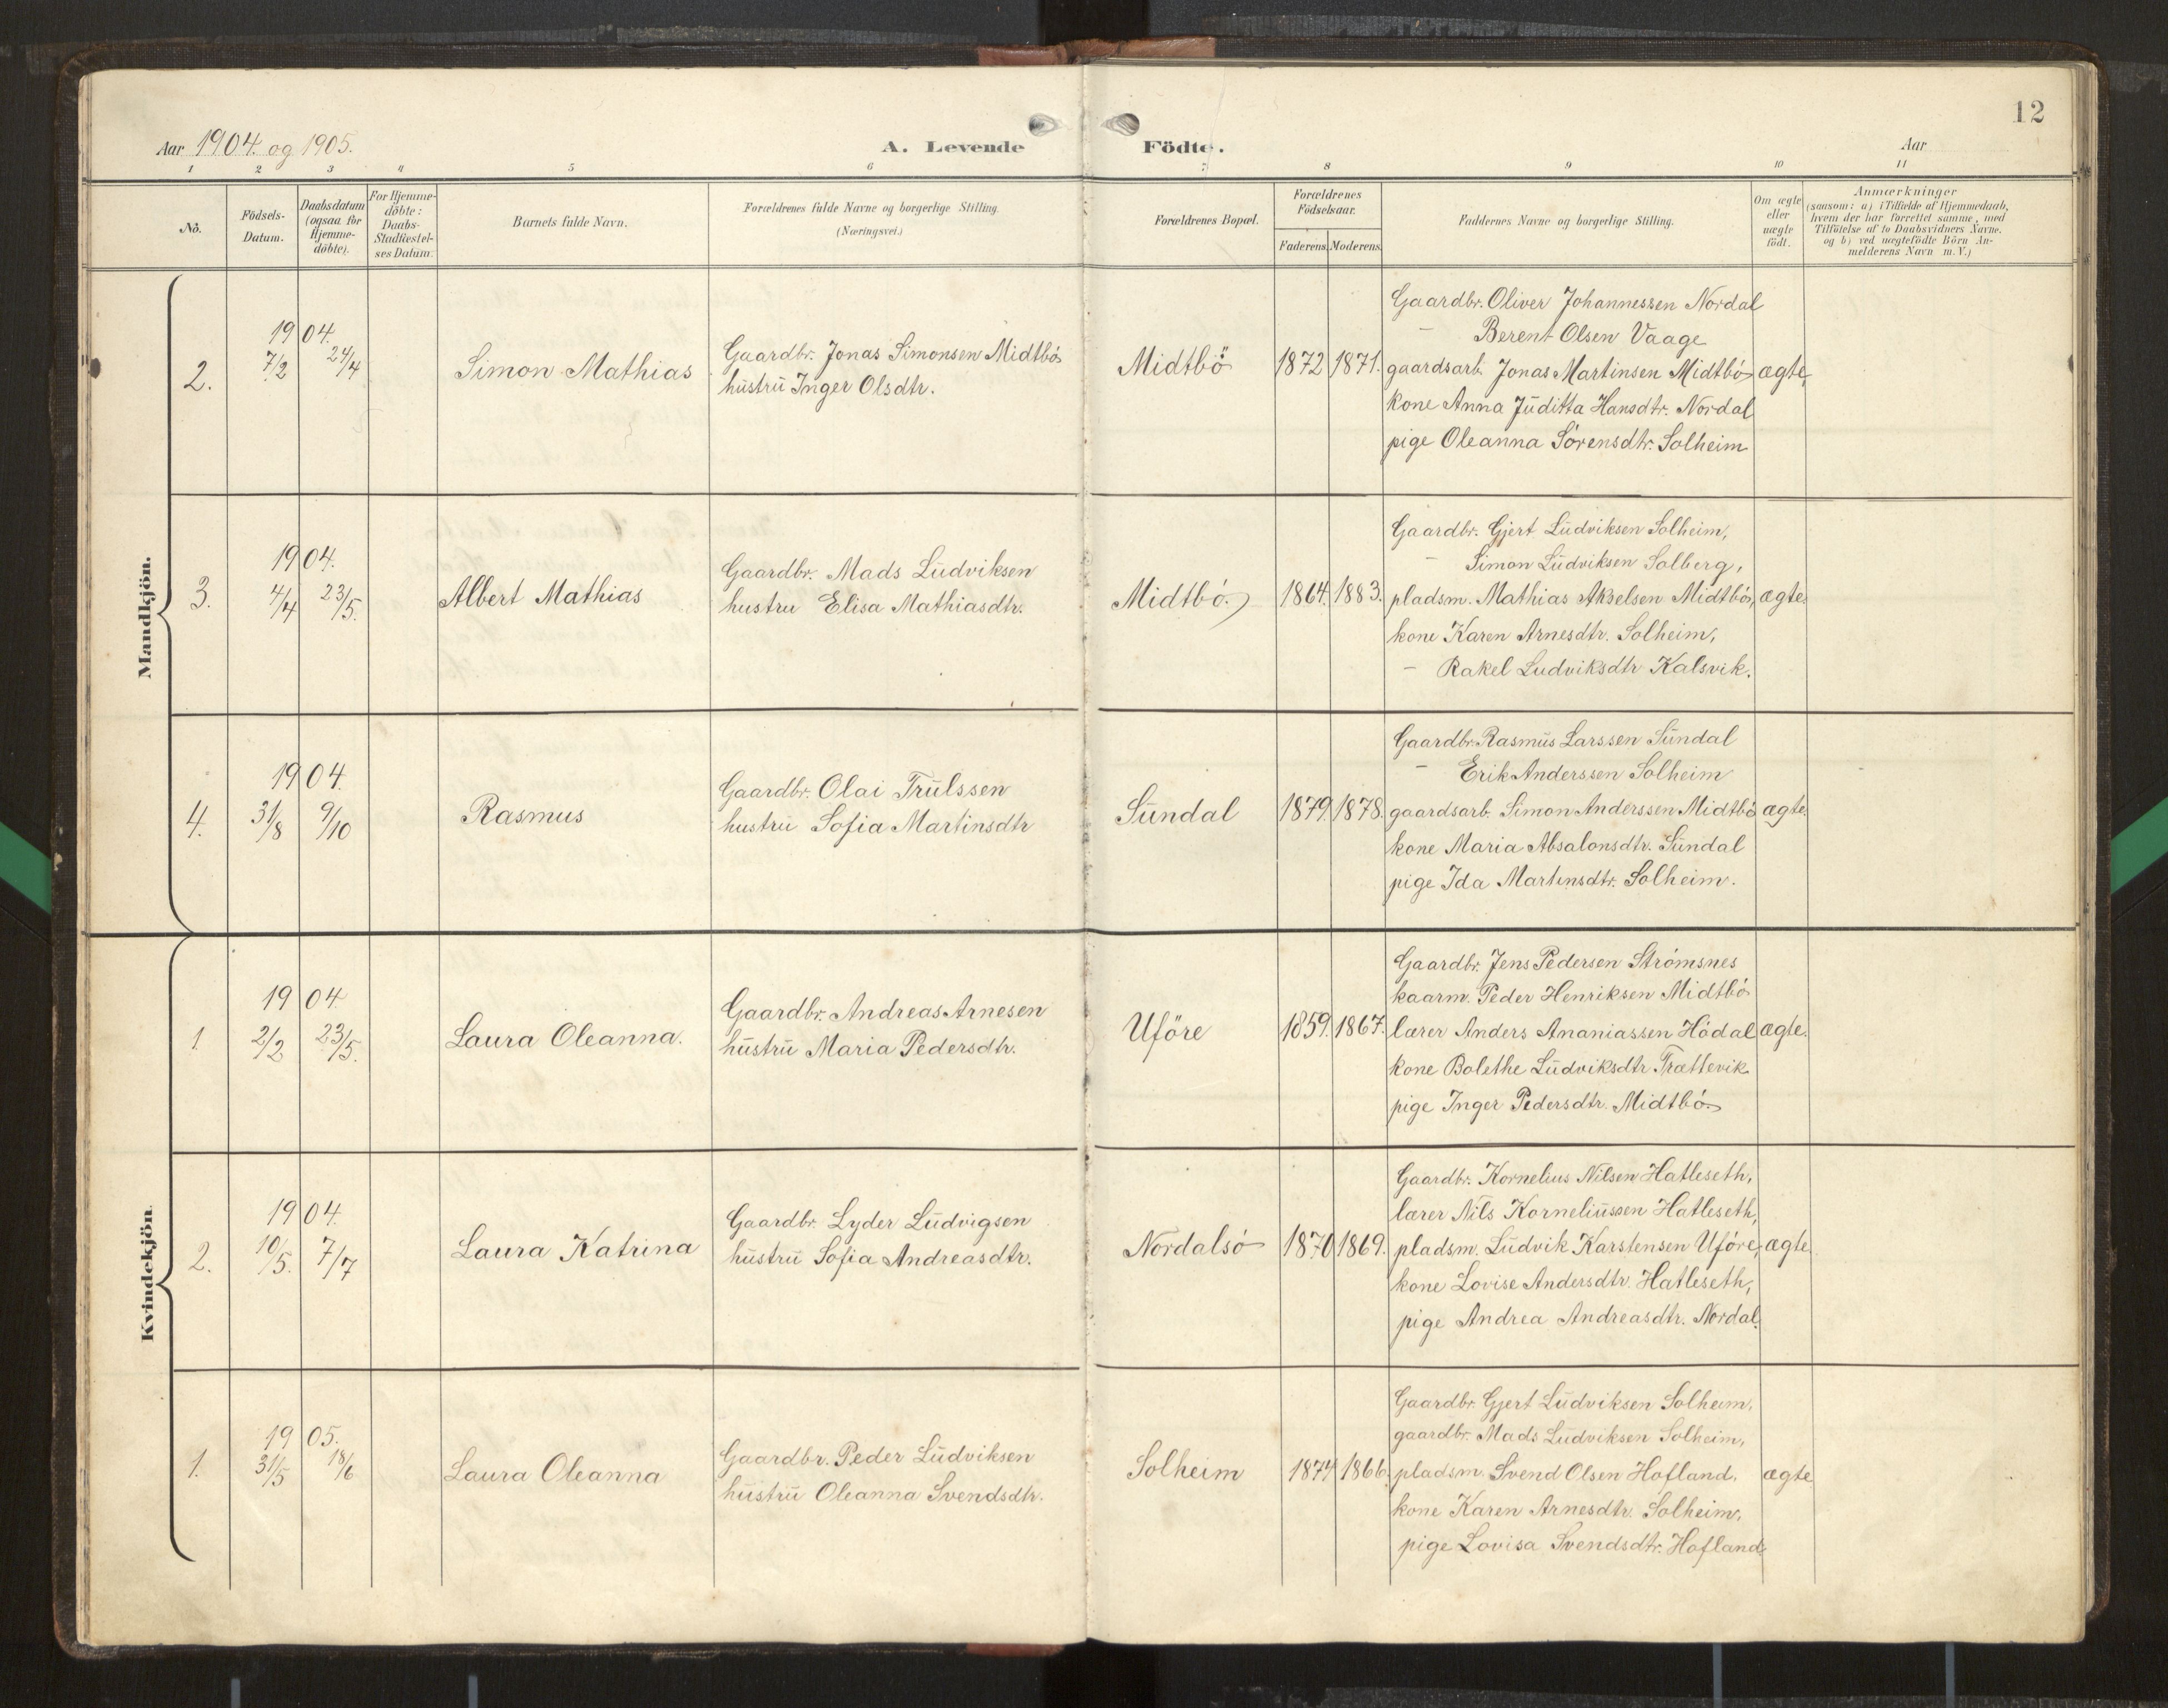 12
Aar 1904. og 1905.
A. Levende
Födte.
Aar
1 2 3 4 5 6 7 8 9 10 11
No.
Födsels-
Datum.
Daabsdatum
(ogsaa for
Hjemme-
döbte).
For Hjemme-
döbte:
Daabs-
Stadfæstel-
ses Datum.
Barnets fulde Navn.
Forældrenes fulde Navne og borgerlige Stilling.
(Næringsvei.)
Forældrenes Bopæl.
Forældrenes
Födselsaar.
Faderens. Moderens.
Faddernes Navne og borgerlige Stilling.
Om ægte
eller
uægte
födt.
Anmærkninger
(saasom: a) i Tilfælde af Hjemmedaab,
hvem der har forrettet samme, med
Tilföielse af to Daabsvidners Navne.
og b) ved uægtefödte Börn An-
melderens Navn m.V.)
Mandkjön.
2.
1904.
7/2 24/4
Simon Mathias
Gaardbr. Jonas Simonsen Midtbö
hustru Inger Olsdtr.
Midtbö
1872 1871.
Gaardbr. Oliver Johannessen Nordal
– Berent Olsen Vaage
gaardsarb. Jonas Martinsen Midtbö
kone Anna Juditta Hansdtr. Nordal
pige Oleanna Sörensdtr. Solheim
ægte,
3.
1904.
4/4 23/5.
Albert Mathias
Gaardbr. Mads Ludviksen
hustru Elisa Mathiasdtr.
Midtbö.
1864. 1883.
Gaardbr. Gjert Ludviksen Solheim,
– Simon Ludviksen Solberg,
pladsm. Mathias Akselsen Midtbö,
kone Karen Arnesdtr. Solheim,
– Rakel Ludviksdtr Kalsvik.
ægte.
4.
1904.
31/8 9/10
Rasmus
Gaardbr. Olai Trulssen
hustru Sofia Martinsdtr
Sundal
1879. 1878.
Gaardbr. Rasmus Larssen Sundal
– Erik Anderssen Solheim
gaardsarb. Simon Anderssen Midtbö
kone Maria Absalonsdtr. Sundal
pige Ida Martinsdtr. Solheim.
ægte.
Kvindekjön.
1.
1904
2/2 23/5.
Laura Oleanna.
Gaardbr. Andreas Arnesen
hustru Maria Pedersdtr.
Uföre
1859. 1867.
Gaardbr. Jens Pedersen Strömsnes
kaarm. Peder Henriksen Midtbö
lærer Anders Ananiassen Hödal
kone Bolethe Ludviksdtr Trættevik
pige Inger Pedersdtr. Midtbö
ægte.
2.
1904.
10/5. 7/7
Laura Katrina
Gaardbr. Lyder Ludvigsen
hustru Sofia Andreasdtr.
Nordalsö
1870 1869.
Gaardbr. Kornelius Nilsen Hatleseth,
lærer Nils Korneliussen Hatleseth,
pladsm. Ludvik Karstensen Uföre,
kone Lovise Andersdtr. Hatleseth,
pige Andrea Andreasdtr. Nordal.
ægte.
1.
1905.
31/5 18/6
Laura Oleanna
Gaardbr. Peder Ludviksen
hustru Oleanna Svendsdtr.
Solheim
1874 1866.
Gaardbr. Gjert Ludviksen Solheim,
gaardbr. Mads Ludviksen Solheim,
pladsm. Svend Olsen Hofland,
kone Karen Arnesdtr. Solheim,
pige Lovisa Svendsdtr. Hofland.
ægte